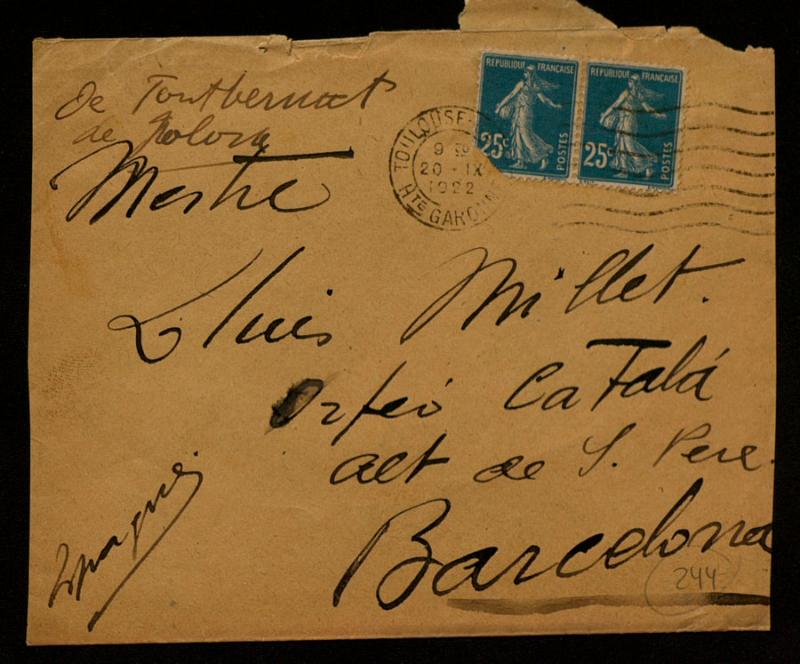 de Fontbernat
de Tolosa
Mestre
Lluis Millet.
Orfeó Català
alt de S. Pere.
Barcelona
Espagne.
244
TOULOUSE-
9
20 - IX
1922
HTE GARONNE
REPUBLIQUE FRANÇAISE
25c
POSTES
REPUBLIQUE FRANÇAISE
25c
POSTES